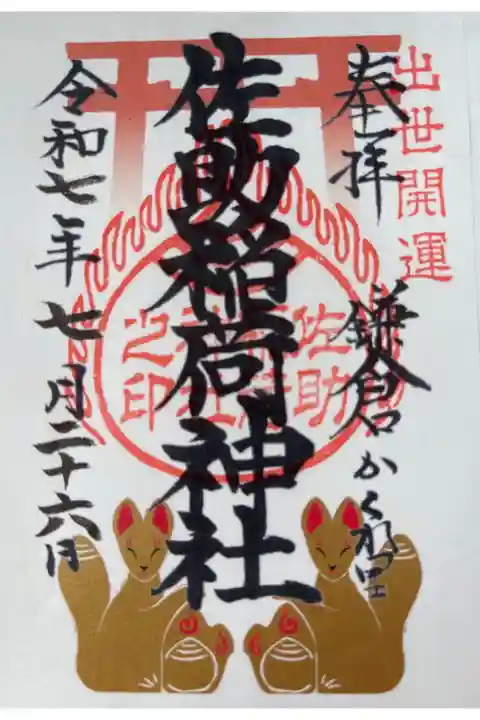 出世開運
奉拝
鎌倉かくれ里
佐助稲荷神社
佐助
稲荷
神社
之印
令和七年七月二十六日